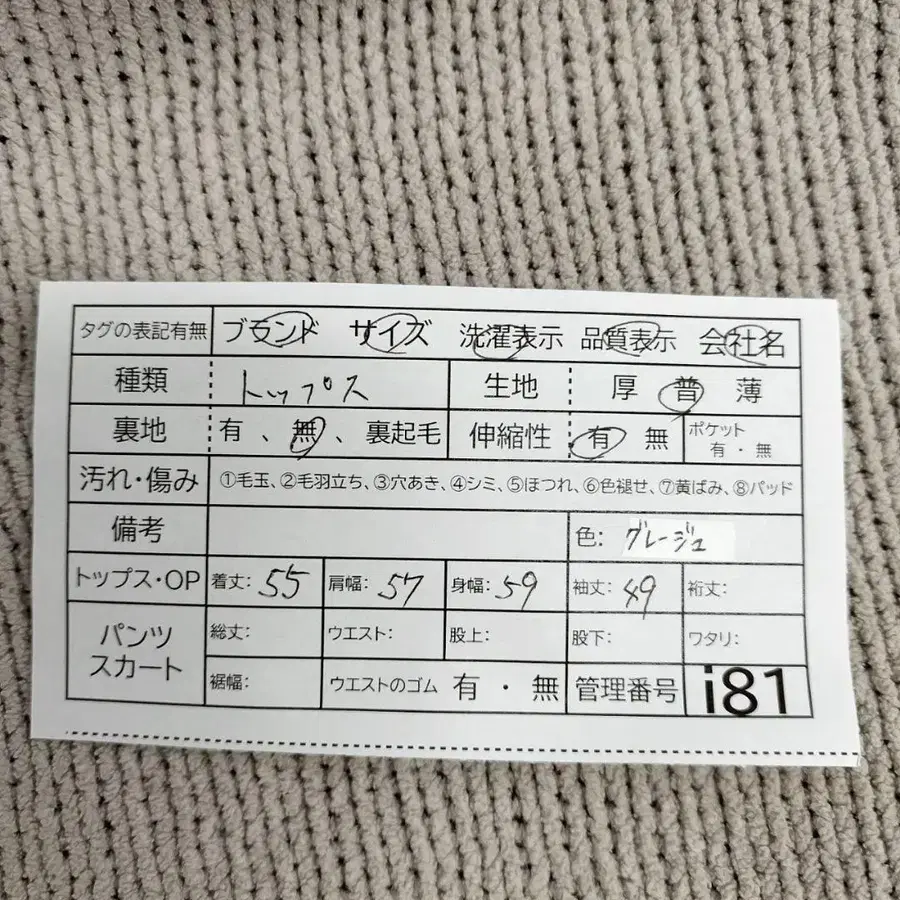 タグの表記有無 ブランド サイズ 洗濯表示 品質表示 会社名
種類 トップス 生地 厚 普 薄
裏地 有 、無、裏起毛 伸縮性 有 無 ポケット 有・無
汚れ・傷み ①毛玉、②毛羽立ち、③穴あき、④シミ、⑤ほつれ、⑥色褪せ、⑦黄ばみ、⑧パッド
備考 色: グレージュ
トップス・OP 着丈: 55 肩幅: 57 身幅: 59 袖丈: 49 裄丈:
パンツ スカート 総丈: ウエスト: 股上: 股下: ワタリ:
裾幅: ウエストのゴム 有・無 管理番号 i81